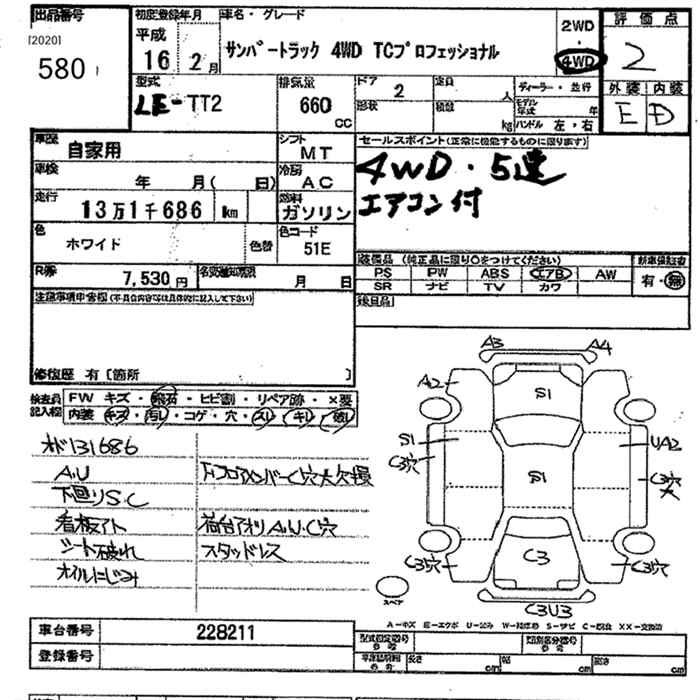 出品番号
[2020]
5801
初度登録年月
平成
16 2月
車名・グレード
サンバートラック 4WD TCプロフェッショナル
2WD
・
4WD
評価点
2
外装 内装
E D
型式
LE-TT2
排気量
660
cc
ドア 2
形状
定員 人
積載 kg
ディーラー・並行
モデル年式 年
ハンドル 左・右
車歴
自家用
シフト
MT
車検
年 月( 日)
冷房
AC
走行
13万1千686 km
燃料
ガソリン
色
ホワイド
色替
色コード
51E
R券
7,530円
名変期限 月 日
セールスポイント(正常に機能するものに限ります)
4WD・5速
エアコン付
装備品 (純正品に限り○をつけてください)
PS PW ABS エアB AW
SR ナビ TV カワ
新車保証書
有・無
注意事項申告欄(不具合内容等は具体的に記入して下さい)
修復歴 有〔箇所 〕
検査員記入欄
FW キズ・飛石・ヒビ割・リペア跡・×要
内装 キズ・汚レ・コゲ・穴・スレ・キレ・破レ
メド131686
A.U
下回りS.C
看板アト
シート破れ
オイルにじみ
下フロアメンバーC穴大欠損
荷台アオリA.U.C穴
スタッドレス
A3 A4
A2
S1
S1
UA2
C3穴
S1
C3穴
大
C3穴
C3
C3穴
C3U3
スペア
A-キズ E-エクボ U-凹み W-補修跡 S-サビ C-腐食 XX-交換済
車台番号
228211
登録番号
型式指定番号
類別区分番号
長さ cm 幅 cm 高さ cm